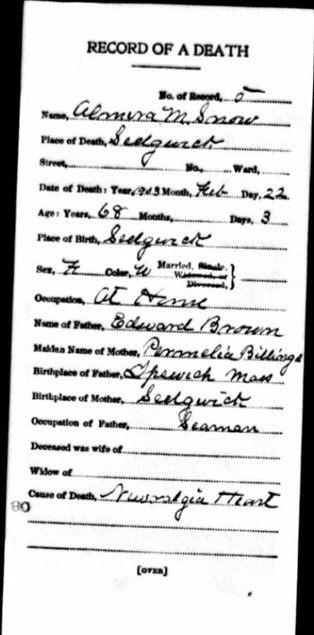 RECORD OF A DEATH
No. of Record, 5
Name, Almira M. Snow
Place of Death, Sedgwick
Street, No., Ward,
Date of Death: Year, 1903 Month, Feb Day, 22
Age: Years, 68 Months, Days, 3
Place of Birth, Sedgwick
Sex, F Color, W Married, Single, Widowed, or Divorced,
Occupation, At Home
Name of Father, Edward Brown
Maiden Name of Mother, Permelia Billings
Birthplace of Father, Ipswich Mass
Birthplace of Mother, Sedgwick
Occupation of Father, Seaman
Deceased was wife of
Widow of
Cause of Death, Neuralgia Heart
80
[OVER]